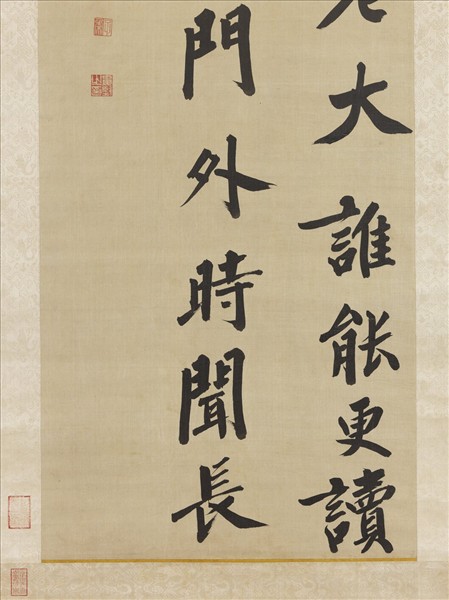 老大誰能更讀
門外時聞長